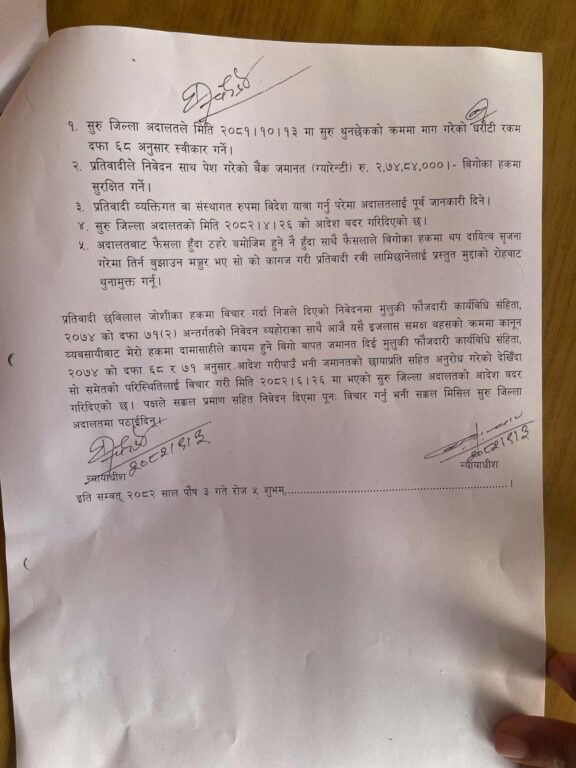 १. सुरु जिल्ला अदालतले मिति २०८१।१०।१३ मा सुरु थुनछेकको क्रममा माग गरेको धरौटी रकम
दफा ६८ अनुसार स्वीकार गर्ने।
२. प्रतिवादीले निवेदन साथ पेश गरेको बैंक जमानत (ग्यारेन्टी) रु. २,७४,८४,०००।- बिगोका हकमा
सुरक्षित गर्ने।
३. प्रतिवादी व्यक्तिगत वा संस्थागत रुपमा विदेश यात्रा गर्नु परेमा अदालतलाई पूर्व जानकारी दिने।
४. सुरु जिल्ला अदालतको मिति २०८२।४।२६ को आदेश बदर गरिदिएको छ।
५. अदालतबाट फैसला हुँदा ठहरे बमोजिम हुने नै हुँदा साथै फैसलाले बिगोका हकमा थप दायित्व सृजना
गरेमा तिर्न बुझाउन मञ्जुर भए सो को कागज गरी प्रतिवादी रवी लामिछानेलाई प्रस्तुत मुद्दाको रोहबाट
थुनामुक्त गर्नू।
प्रतिवादी छबिलाल जोशीका हकमा विचार गर्दा निजले दिएको निवेदनमा मुलुकी फौजदारी कार्यविधि संहिता,
२०७४ को दफा ७१(२) अन्तर्गतको निवेदन व्यहोराका साथै आजै यसै इजलास समक्ष बहसको क्रममा कानून
व्यवसायीबाट मेरो हकमा दामासाहीले कायम हुने बिगो बापत जमानत दिई मुलुकी फौजदारी कार्यविधि संहिता,
२०७४ को दफा ६८ र ७१ अनुसार आदेश गरीपाउँ भनी जमानतको छायाप्रति सहित अनुरोध गरेको देखिँदा
सो समेतको परिस्थितिलाई विचार गरी मिति २०८२।६।२६ मा भएको सुरु जिल्ला अदालतको आदेश बदर
गरिदिएको छ। पक्षले सक्कल प्रमाण सहित निवेदन दिएमा पुनः विचार गर्नु भनी सक्कल मिसिल सुरु जिल्ला
अदालतमा पठाईदिनू।
२०८२।९।३ २०८२।९।३
न्यायाधीश न्यायाधीश
इति सम्वत् २०८२ साल पौष ३ गते रोज ५ शुभम्..........................................................।